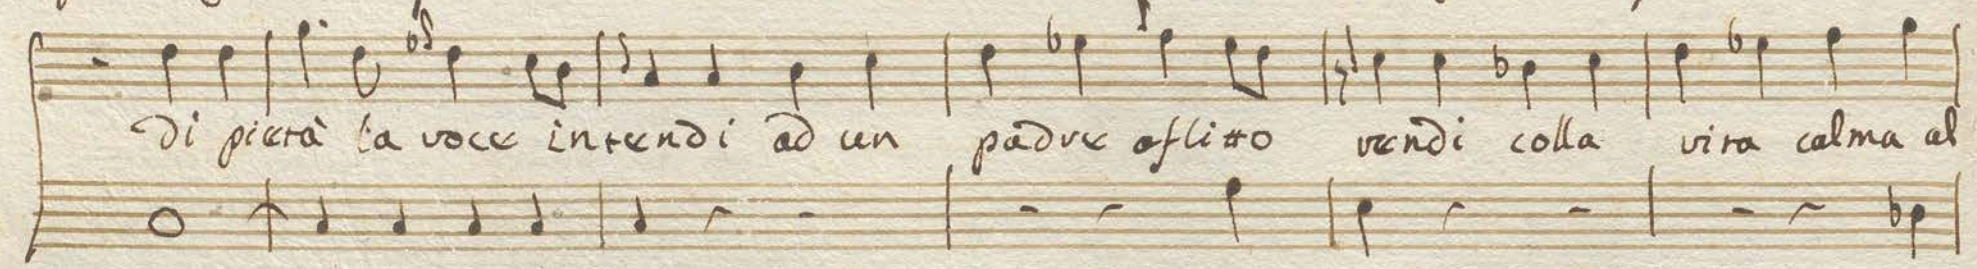 di pietà la voce intendi ad un padre aflitto rendi colla vita calma al